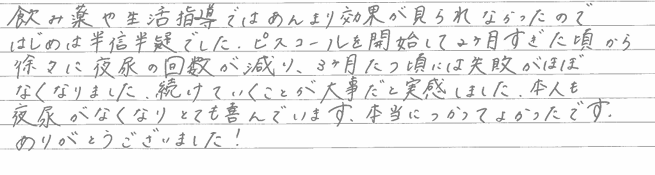 飲み薬や生活指導ではあんまり効果が見られなかったので
はじめは半信半疑でした.ピスコールを開始して2ヶ月すぎた頃から
徐々に夜尿の回数が減り、3ヶ月たつ頃には失敗がほぼ
なくなりました.続けていくことが大事だと実感しました.本人も
夜尿がなくなりとても喜んでいます.本当につかってよかったです.
ありがとうございました!